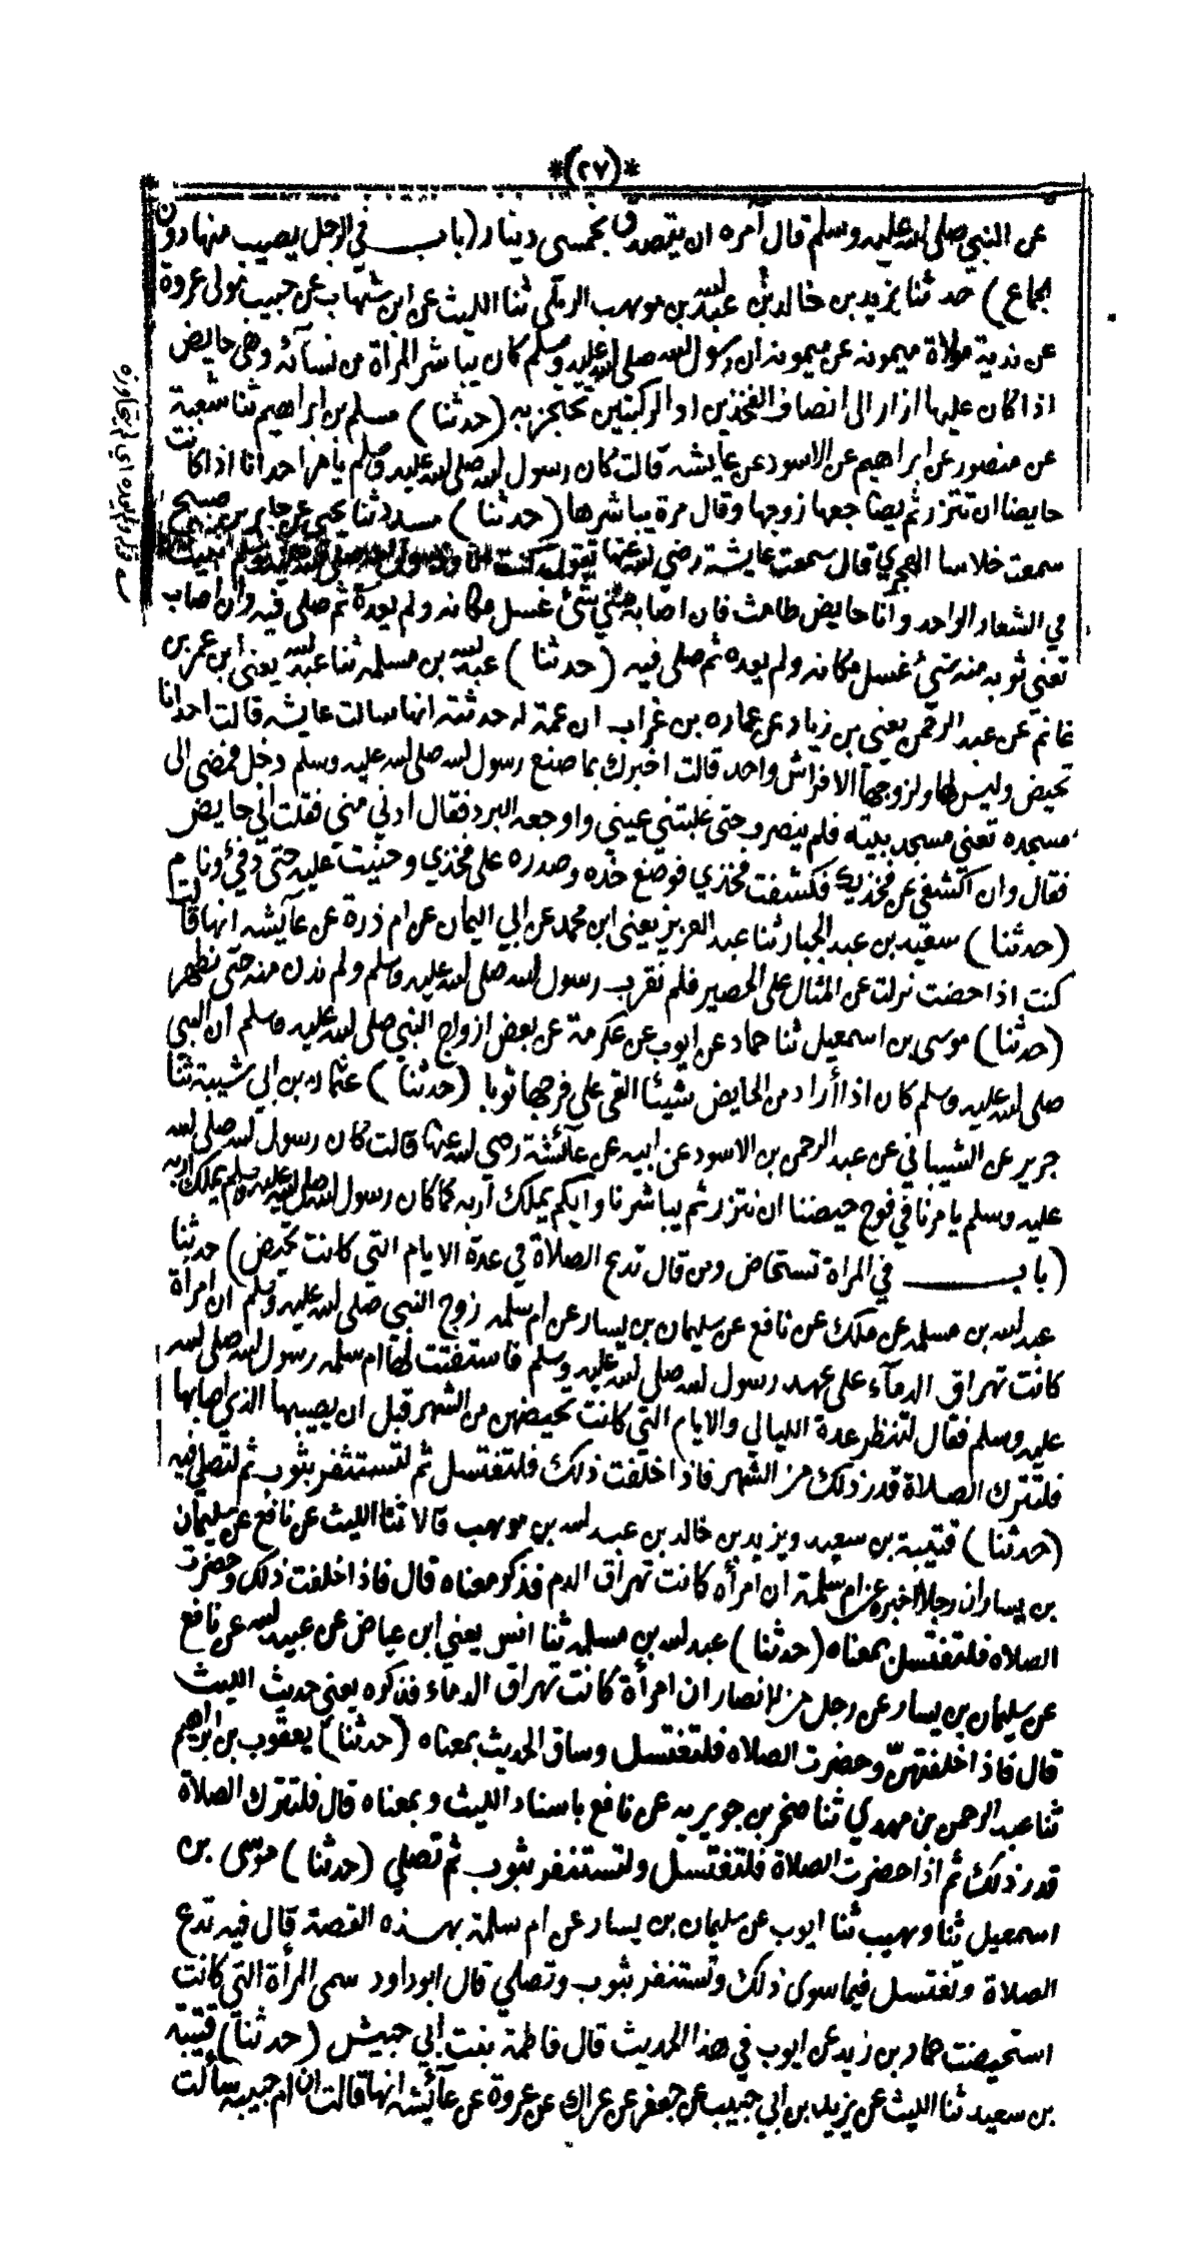 *(٢٧)*
عن النبي صلى الله عليه وسلم قال آمره ان يتصدق بخمسي دينار (باب في الرجل يصيب منها دون
الجماع) حدثنا يزيد بن خالد بن عبد الله بن موهب الرملي ثنا الليث عن ابن شهاب عن حبيب مولى عروة
عن ندبة مولاة ميمونه عن ميمونه ان رسول الله صلى الله عليه وسلم كان يباشر المرأة من نسآئه وهي حايض
اذا كان عليها ازار الى انصاف الفخذين او الركبتين تحتجز به (حدثنا) مسلم بن ابراهيم ثنا شعبة
عن منصور عن ابراهيم عن الاسود عن عايشه قالت كان رسول الله صلى الله عليه وسلم يأمر احدانا اذا كانت
حايضا ان تتزر ثم يضاجعها زوجها وقال مرة يباشرها (حدثنا) مسدد ثنا يحيى عن جابر بن صبح
سمعت خلاسا الهجري قال سمعت عايشة رضي الله عنها تقول كنت انا ورسول الله صلى الله عليه وسلم نبيت
في الشعار الواحد وانا حايض طامث فان اصابه مني شئ غسل مكانه ولم يعده ثم صلى فيه وان اصاب
تعني ثوبه منه شئ غسل مكانه ولم يعده ثم صلى فيه (حدثنا) عبد الله بن مسلمه ثنا عبد الله يعني ابن عمر بن
غانم عن عبد الرحمن يعني بن زياد عن عماره بن غراب ان عمة له حدثته انها سالت عايشه قالت احدانا
تحيض وليس لها ولزوجها الا فراش واحد قالت اخبرك بما صنع رسول الله صلى الله عليه وسلم دخل فمضى الى
مسجده تعني مسجد بيته فلم ينصرف حتى غلبتني عيني واوجعه البرد فقال ادني مني فقلت اني حايض
فقال وان اكشفي عن فخذيك فكشفت فخذي فوضع خده وصدره على فخذي وحنيت عليه حتى دفئ ونام
(حدثنا) سعيد بن عبد الجبار ثنا عبد العزيز يعني ابن محمد عن ابي اليمان عن ام ذرة عن عآيشه انها قالت
كنت اذا حضت نزلت عن المثال على الحصير فلم نقرب رسول الله صلى الله عليه وسلم ولم ندن منه حتى نطهر
(حدثنا) موسى بن اسمعيل ثنا حماد عن ايوب عن عكرمة عن بعض ازواج النبي صلى الله عليه وسلم ان النبي
صلى الله عليه وسلم كان اذا أراد من الحايض شيئا القى على فرجها ثوبا (حدثنا) عثمان بن ابي شيبة ثنا
جرير عن الشيباني عن عبد الرحمن بن الاسود عن ابيه عن عآئشة رضي الله عنها قالت كان رسول الله صلى الله
عليه وسلم يامرنا في فوح حيضنا ان نتزر ثم يباشرنا وايكم يملك اربه كما كان رسول الله صلى الله عليه وسلم يملك اربه
(باب في المراة تستحاض ومن قال تدع الصلاة في عدة الايام التي كانت تحيض) حدثنا
عبد الله بن مسلمه عن ملك عن نافع عن سليمان بن يسار عن ام سلمه زوج النبي صلى الله عليه وسلم ان امرأة
كانت تهراق الدمآء على عهد رسول الله صلى الله عليه وسلم فاستفتت لها ام سلمه رسول الله صلى الله
عليه وسلم فقال لتنظر عدة الليالي والايام التي كانت تحيضهن من الشهر قبل ان يصيبها الذي اصابها
فلتترك الصلاة قدر ذلك من الشهر فاذا خلفت ذلك فلتغتسل ثم لتستثفر بثوب ثم لتصلي فيه
(حدثنا) قتيبة بن سعيد ويزيد بن خالد بن عبد الله بن موهب قالا ثنا الليث عن نافع عن سليمان
بن يسار ان رجلا اخبره عن ام سلمة ان امرأه كانت تهراق الدم فذكر معناه قال فاذا خلفت ذلك وحضرت
الصلاه فلتغتسل بمعناه (حدثنا) عبد الله بن مسلمه ثنا انس يعني ابن عياض عن عبيد الله عن نافع
عن سليمان بن يسار عن رجل من الانصار ان امرأة كانت تهراق الدماء فذكره يعني حديث الليث
قال فاذا خلفتهن وحضرت الصلاه فلتغتسل وساق الحديث بمعناه (حدثنا) يعقوب بن ابراهيم
ثنا عبد الرحمن بن مهدي ثنا صخر بن جويريه عن نافع باسناد الليث وبمعناه قال فلتترك الصلاة
قدر ذلك ثم اذا حضرت الصلاة فلتغتسل ولتستثفر بثوب ثم تصلي (حدثنا) موسى بن
اسمعيل ثنا وهيب ثنا ايوب عن سليمان بن يسار عن ام سلمة بهذه القصة قال فيه تدع
الصلاة وتغتسل فيما سوى ذلك وتستثفر بثوب وتصلي قال ابو داود سمى المرأة التي كانت
استحيضت حماد بن زيد عن ايوب في هذا الحديث قال فاطمة بنت أبي حبيش (حدثنا) قتيبة
بن سعيد ثنا الليث عن يزيد بن ابي حبيب عن جعفر عن عراك عن عروة عن عآئشه انها قالت ان ام حبيبه سألت